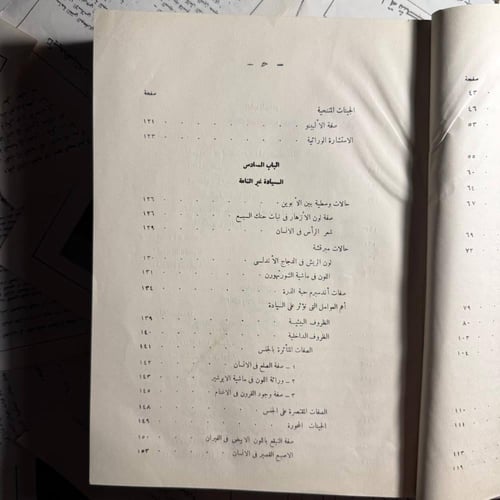 — ح —
صفحة
الجينات المتنحية
صفة الألبينو ١٢١
الاستشارة الوراثية ١٢٣
الباب السادس
السيادة غير التامة
حالات وسطية بين الأبوين ١٢٦
صفة لون الأزهار فى نبات حنك السبع ١٢٦
شعر الرأس فى الانسان ١٢٩
حالات مبرقشة
لون الريش فى الدجاج الأندلسى ١٣٠
اللون فى ماشية الشورتهورن ١٣١
صفات أندسبرم حبة الذرة ١٣٤
أهم العوامل التى تؤثر على السيادة
الظروف البيئية ١٣٩
الظروف الداخلية ١٤٠
الصفات المتأثرة بالجنس ١٤١
١ – صفة الصلع فى الانسان ١٤٢
٢ – وراثة اللون فى ماشية الايرشير ١٤٣
٣ – صفة وجود القرون فى الاغنام ١٤٥
الصفات المقتصرة على الجنس ١٤٨
الجينات المحورة ١٤٩
صفة التبقع باللون الابيض فى الفيران ١٥٠
الاصبع القصير فى الانسان ١٥٣
صفحة
٤٣
٤٦
٥٣
٥٥
٦٤
٦٧
٦٩
٧٢
٧٩
٨٠
١٠٣
١٠٤
١١٠
١١١
١١٣
١١٩